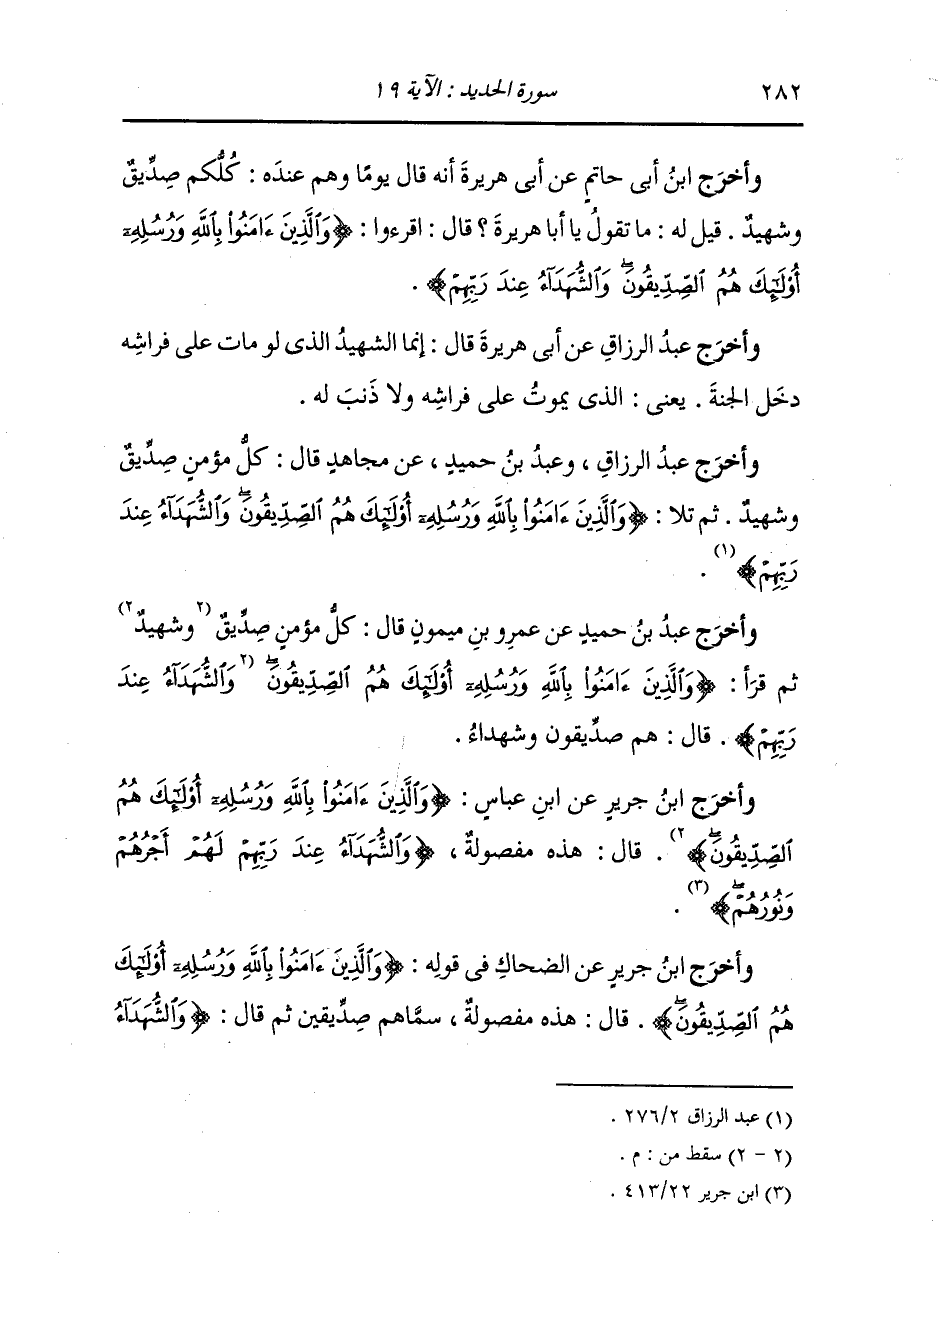 ٢٨٢ سورة الحديد : الآية ١٩
وأخرَج ابنُ أبى حاتمٍ عن أبى هريرةَ أنه قال يومًا وهم عندَه : كُلُّكم صِدِّيقٌ
وشهيدٌ . قيل له : ما تقولُ يا أبا هريرةَ ؟ قال : اقرءوا : ﴿وَٱلَّذِينَ ءَامَنُواْ بِٱللَّهِ وَرُسُلِهِۦٓ
أُوْلَٰٓئِكَ هُمُ ٱلصِّدِّيقُونَۖ وَٱلشُّهَدَآءُ عِندَ رَبِّهِمۡ﴾ .
وأخرَج عبدُ الرزاقِ عن أبى هريرةَ قال : إنما الشهيدُ الذى لو مات على فراشِه
دخَل الجنةَ . يعنى : الذى يموتُ على فراشِه ولا ذَنبَ له .
وأخرَج عبدُ الرزاقِ ، وعبدُ بنُ حميدٍ ، عن مجاهدٍ قال : كلُّ مؤمنٍ صِدِّيقٌ
وشهيدٌ . ثم تلا : ﴿وَٱلَّذِينَ ءَامَنُواْ بِٱللَّهِ وَرُسُلِهِۦٓ أُوْلَٰٓئِكَ هُمُ ٱلصِّدِّيقُونَۖ وَٱلشُّهَدَآءُ عِندَ
رَبِّهِمۡ﴾(١) .
وأخرَج عبدُ بنُ حميدٍ عن عمرِو بنِ ميمونٍ قال : كلُّ مؤمنٍ صِدِّيقٌ (٢وشهيدٌ٢)
ثم قرَأ : ﴿وَٱلَّذِينَ ءَامَنُواْ بِٱللَّهِ وَرُسُلِهِۦٓ أُوْلَٰٓئِكَ هُمُ ٱلصِّدِّيقُونَۖ (٢وَٱلشُّهَدَآءُ عِندَ
رَبِّهِمۡ﴾ . قال : هم صدِّيقون وشهداءُ .
وأخرَج ابنُ جريرٍ عن ابنِ عباسٍ : ﴿وَٱلَّذِينَ ءَامَنُواْ بِٱللَّهِ وَرُسُلِهِۦٓ أُوْلَٰٓئِكَ هُمُ
ٱلصِّدِّيقُونَۖ﴾٢) . قال : هذه مفصولةٌ ، ﴿وَٱلشُّهَدَآءُ عِندَ رَبِّهِمۡ لَهُمۡ أَجۡرُهُمۡ
وَنُورُهُمۡۖ﴾(٣) .
وأخرَج ابنُ جريرٍ عن الضحاكِ فى قولِه : ﴿وَٱلَّذِينَ ءَامَنُواْ بِٱللَّهِ وَرُسُلِهِۦٓ أُوْلَٰٓئِكَ
هُمُ ٱلصِّدِّيقُونَۖ﴾ . قال : هذه مفصولةٌ ، سمَّاهم صِدِّيقين ثم قال : ﴿وَٱلشُّهَدَآءُ
(١) عبد الرزاق ٢/٢٧٦ .
(٢ - ٢) سقط من : م .
(٣) ابن جرير ٢٢/٤١٣ .